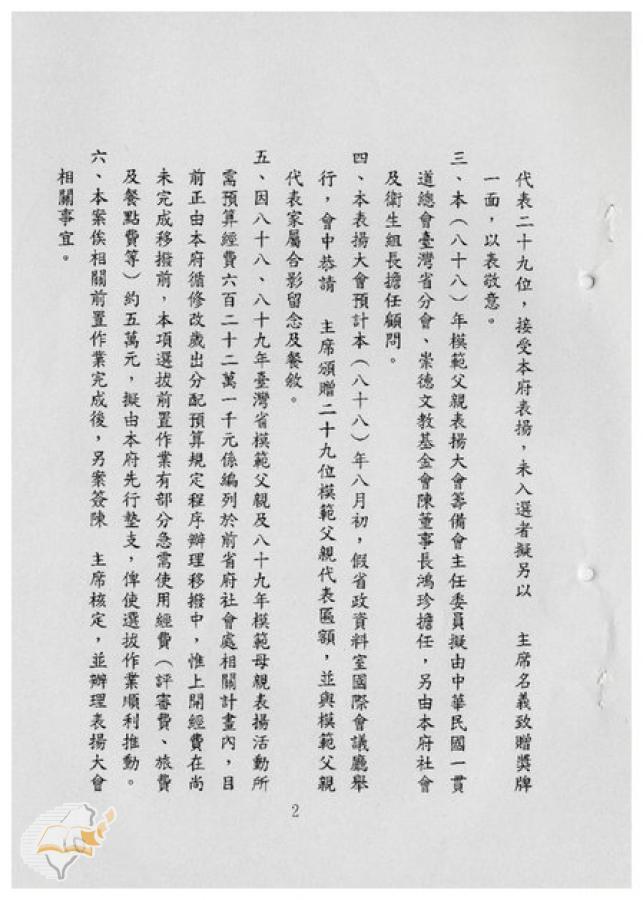 代表二十九位，接受本府表揚，未入選者擬另以　主席名義致贈獎牌
一面，以表敬意。
三、本（八十八）年模範父親表揚大會籌備會主任委員擬由中華民國一貫
道總會臺灣省分會、崇德文教基金會陳董事長鴻珍擔任，另由本府社會
及衛生組長擔任顧問。
四、本表揚大會預計本（八十八）年八月初，假省政資料室國際會議廳舉
行，會中恭請　主席頒贈二十九位模範父親代表區額，並與模範父親
代表家屬合影留念及餐敘。
五、因八十八、八十九年臺灣省模範父親及八十九年模範母親表揚活動所
需預算經費六百二十二萬一千元係編列於前省府社會處相關計畫內，目
前正由本府循修改歲出分配預算規定程序辦理移撥中，惟上開經費在尚
未完成移撥前，本項選拔前置作業有部分急需使用經費（評審費、旅費
及餐點費等）約五萬元，擬由本府先行墊支，俾使選拔作業順利推動。
六、本案俟相關前置作業完成後，另案簽陳　主席核定，並辦理表揚大會
相關事宜。
2